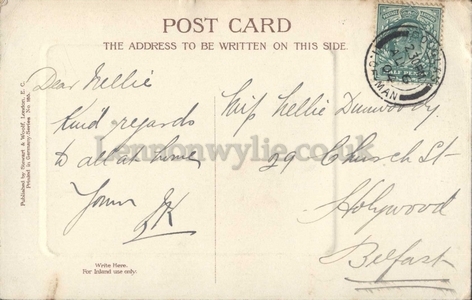 POST CARD
THE ADDRESS TO BE WRITTEN ON THIS SIDE.
HALF PENNY
Dear Nellie
Kind regards
to all at home
Yours
JK
Miss Nellie Dunwoody
29 Church St
Holywood
Belfast
Lennonwylie.co.uk
Write Here.
For Inland use only.
Published by Stewart & Woolf, London, E. C.
Printed in Germany-Series No.